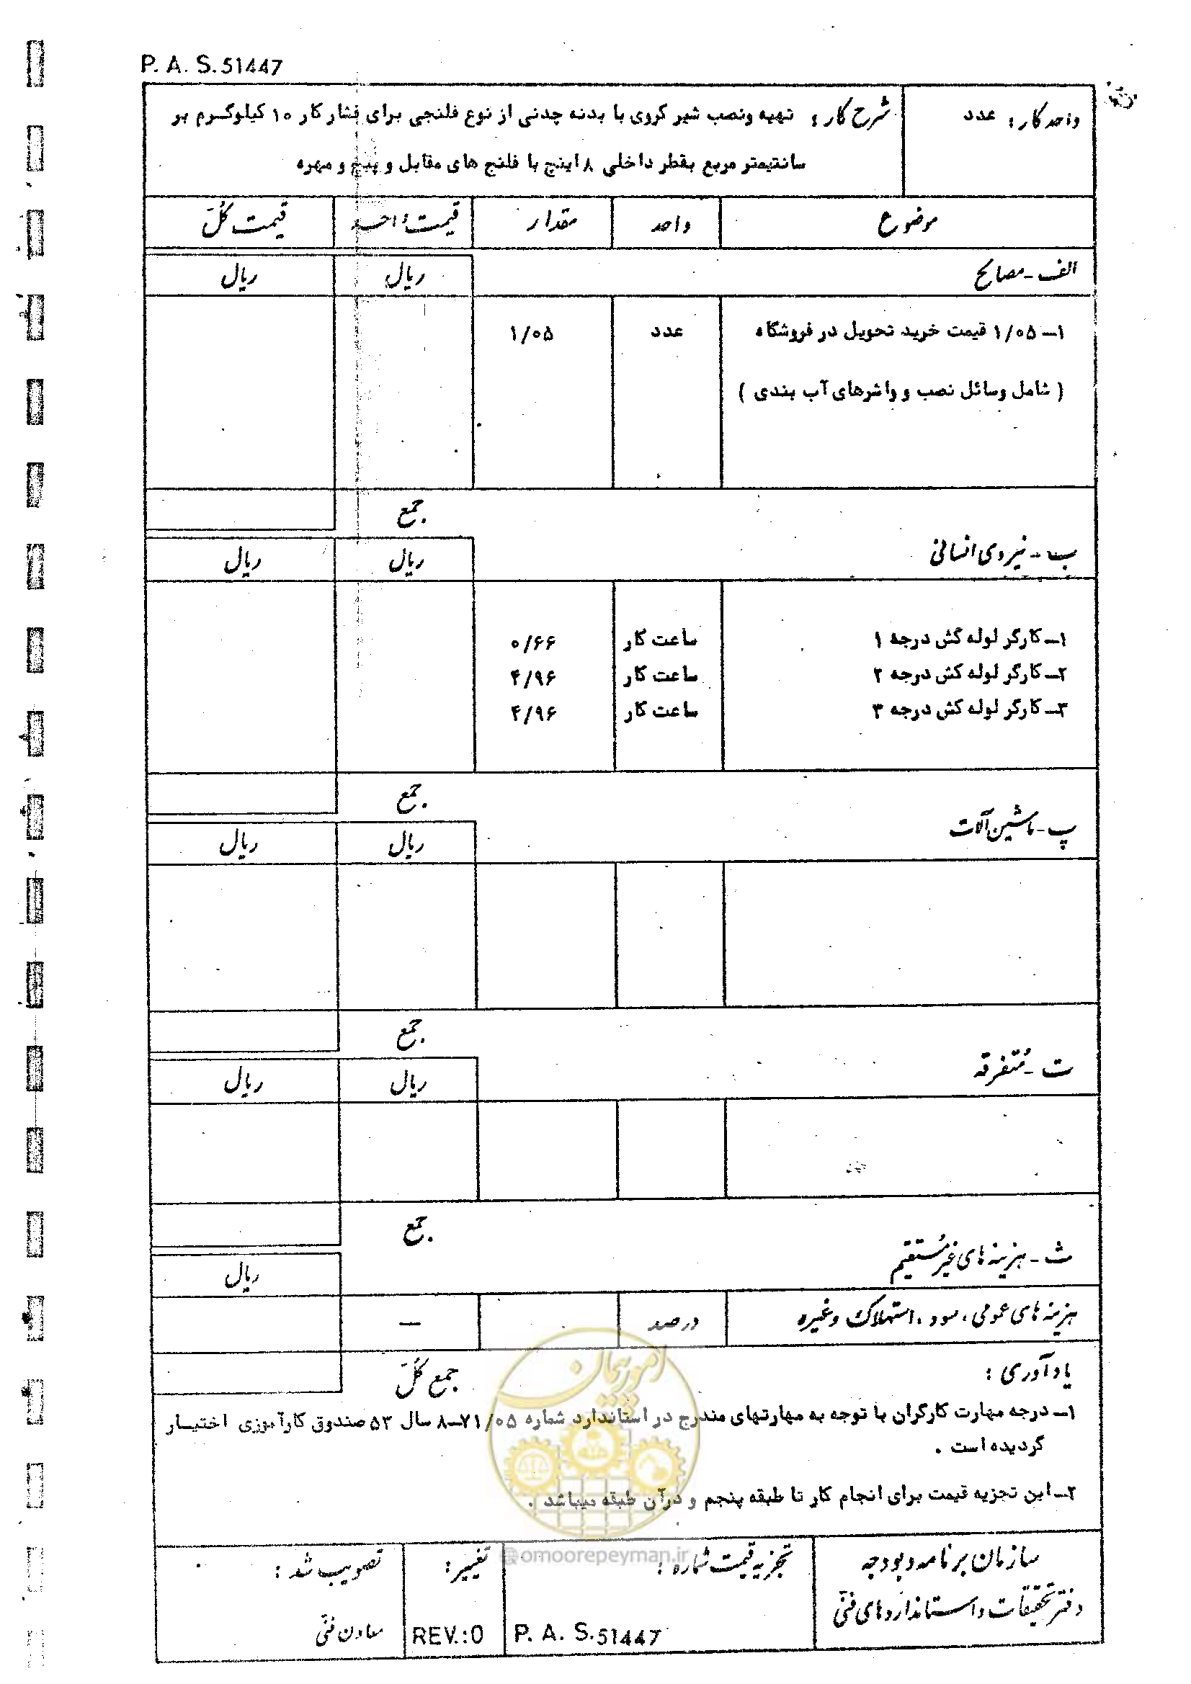 P. A. S. 51447
واحد کار : عدد
شرح کار : تهیه ونصب شیر کروی با بدنه چدنی از نوع فلنجی برای فشار کار ۱۰ کیلوگرم بر
سانتیمتر مربع بقطر داخلی ۸ اینچ با فلنج های مقابل و پیچ و مهره
موضوع واحد مقدار قیمت واحد قیمت کل
الف - مصالح ریال ریال
۱ـ ۱/۰۵ قیمت خرید تحویل در فروشگاه عدد ۱/۰۵
( شامل وسائل نصب و واشرهای آب بندی )
جمع
ب - نیروی انسانی ریال ریال
۱ـ کارگر لوله کش درجه ۱ ساعت کار ۰/۶۶
۲ـ کارگر لوله کش درجه ۲ ساعت کار ۴/۹۶
۳ـ کارگر لوله کش درجه ۳ ساعت کار ۴/۹۶
جمع
پ - ماشین آلات ریال ریال
جمع
ت - متفرقه ریال ریال
جمع
ث - هزینه های غیر مستقیم ریال
هزینه های عمومی ، سود ، استهلاک وغیره درصد —
یادآوری : جمع کل
۱ـ درجه مهارت کارگران با توجه به مهارتهای مندرج در استاندارد شماره ۷۱/۰۵ـ۸ سال ۵۳ صندوق کارآموزی اختیار
گردیده است .
۲ـ این تجزیه قیمت برای انجام کار تا طبقه پنجم و درآن طبقه میباشد .
امور پیمان
@omoorepeyman.ir
سازمان برنامه و بودجه تجزیه قیمت شماره : تغییر : تصویب شد :
دفتر تحقیقات و استانداردهای فنی P. A. S. 51447 REV.:0 معاون فنی